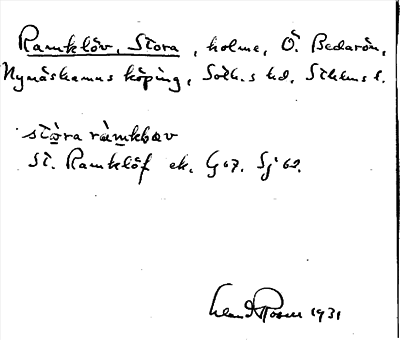 Ramklöv, Stora, holme, Ö. Bedarön,
Nynäshamns köping, Sotk.s hd, Sthlms l.
stòra ràmkləv
St. Ramklöf ek. G 67. Sj 62.
1931